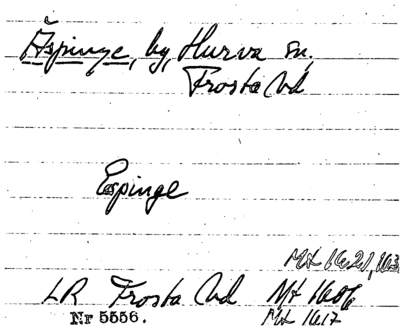 Äspinge, by, Hurva sn.
Frosta hd
Espinge
Mt 1621, 1623
LR Frosta hd Mt 1606
Nr 5556. Mt 1617